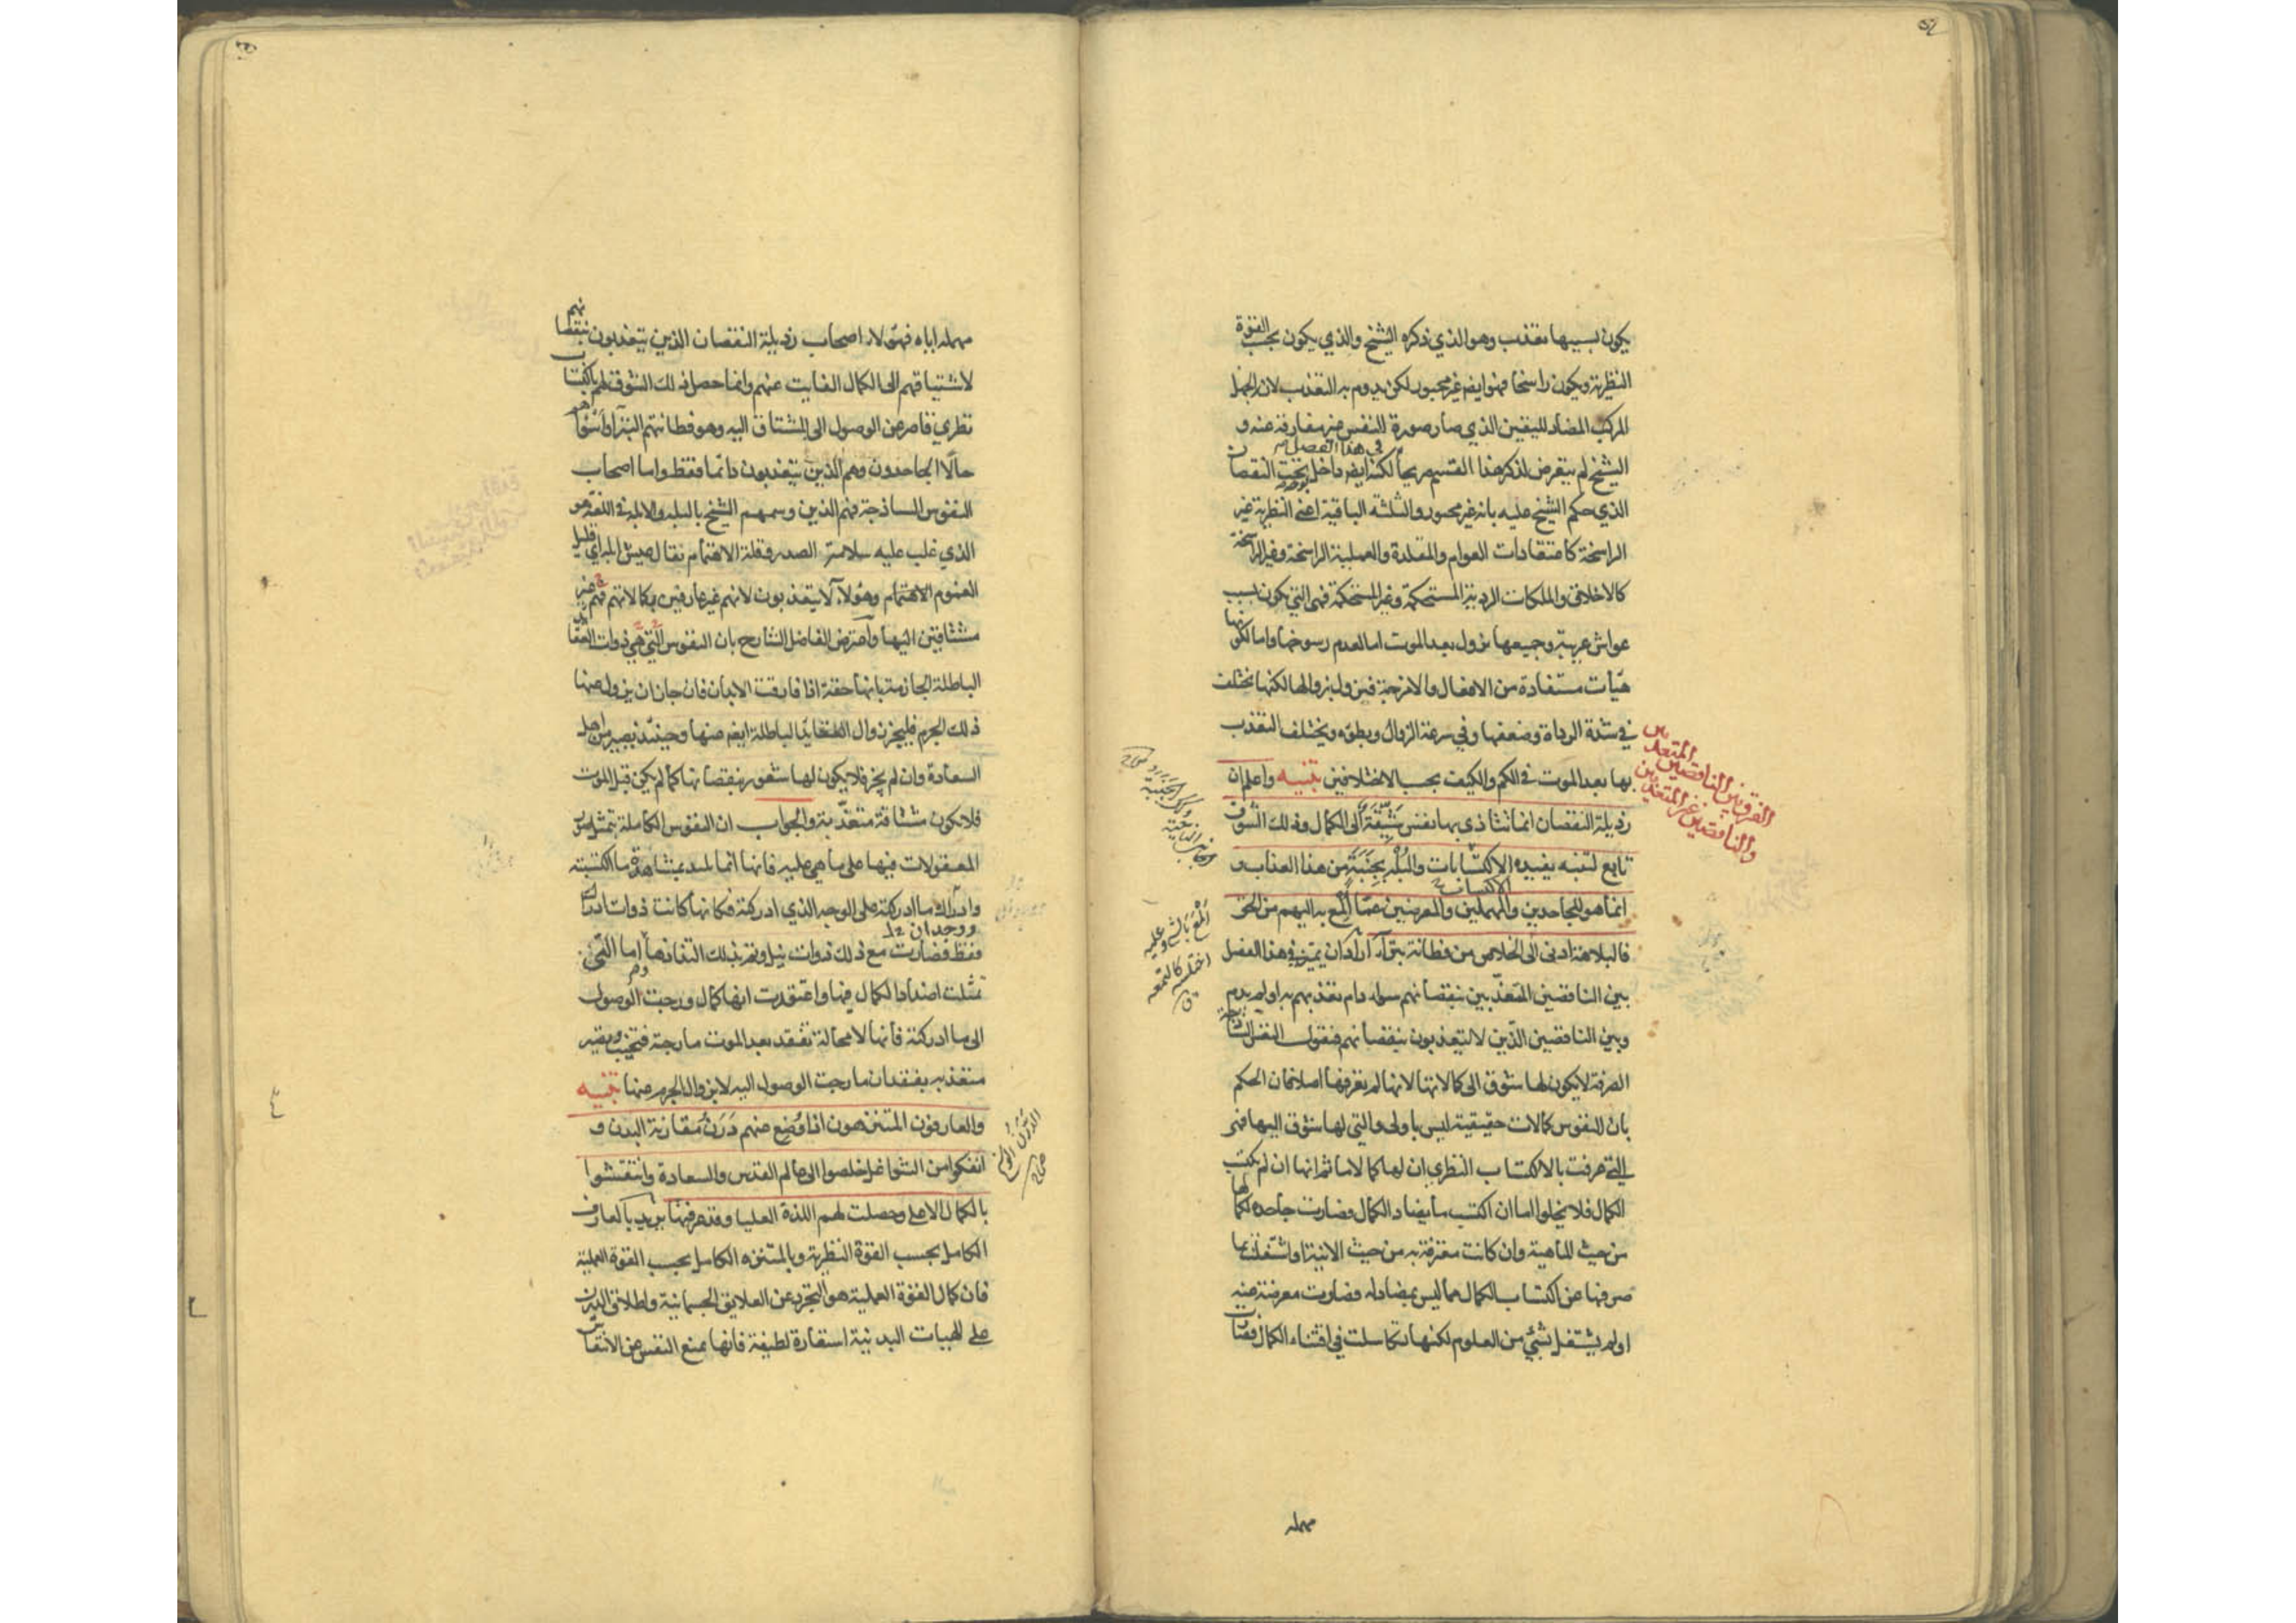 يكون بسببها تعذب وهو الذي ذكره الشيخ والذي يكون بحسب القوة
النظرية ويكون راسخا فهو ايضا غير مجبور لكن يدوم به التعذب لان الجهل
المركب المضاد لليقين الذي صار صورة للنفس غير مفارقة عنه و
الشيخ لم يتعرض لذكر هذا القسم صريحا في هذا الفصل لكنه ايضا داخل تحت النقصان
الذي حكم الشيخ عليه بانه غير مجبور والثلثه الباقية اعنى النظرية غير
الراسخة كاعتقادات العوام والمقلدة والعملية الراسخة وغير الراسخة
كالاخلاق والملكات الردية المستحكمة وغير المستحكمة فهى التي يكون بسبب
غواش غريبة وجميعها يزول بعد الموت اما لعدم رسوخها واما لكونها
هيات مستفادة من الافعال والامزجة فيزول بزوالها لكنها تختلف
في شدة الرداة وضعفها وفي سرعة الزوال وبطؤه ويختلف التعذب
بها بعد الموت في الكم والكيف بحسب الاختلافين تنبيه واعلم ان
رذيلة النقصان انما تتاذى بها نفس شيقة الى الكمال وذلك الشوق
تابع لتنبه يفيده الاكتساب والبله بجنبة من هذا العذاب و
انما هو للجاحدين والمهملين والمعرضين عما المع به اليهم من الحق
فالبلاهة ادنى الى الخلاص من فطانة بتراء اراد ان يميز في هذا الفصل
بين الناقصين المتعذبين بنقصانهم سواء دام تعذبهم به او لم يدم
وبين الناقصين الذين لا يتعذبون بنقصانهم فنقول النفس الساذجة
الصرفة لا يكون لها شوق الى كمالاتها لانها لم تعرفها اصلا فان الحكم
بان للنفوس كمالات حقيقية ليس باولى والتي لها شوق اليها فهى
التي عرفت بالاكتساب النظرى ان لها كمالا ما ثم انها ان لم تكتسب
الكمال فلا يخلوا اما ان اكتسب ما يضاد الكمال فصارت جاحدة لكمالها
من حيث الماهية وان كانت معترفة به من حيث الانية او اشتغلت بما
صرفها عن اكتساب الكمال مما ليس بمضاد له فصارت معرضة عنه
او لم يشتغل بشئ من العلوم لكنها تكاسلت في اقتناء الكمال فصارت
مهملة
الفرق بين الناقصين المتعذبين
والناقصين غير المتعذبين
مهملة اياه فهؤلاء اصحاب رذيلة النقصان الذين يتعذبون بنقصانهم
لاشتياقهم الى الكمال الفايت عنهم وانما حصل ذلك الشوق لهم باكتساب
نظري قاصر عن الوصول الى المشتاق اليه وهو فطانتهم البتراء واسوأهم
حالا الجاحدون وهم الذين يتعذبون دائما فقط واما اصحاب
النفوس الساذجة فهم الذين وسمهم الشيخ بالبله والابله في اللغة هو
الذي غلب عليه سلامة الصدر وقلة الاهتمام يقال عيش ابله اي قليل
الغموم الاهتمام وهؤلاء لا يتعذبون لانهم غير عارفين بكمالاتهم فهم غير
مشتاقين اليها واعترض الفاضل الشارح بان النفوس التي هي ذوات العقايد
الباطلة الجازمة بانها حقة اذا فارقت الابدان فان جاز ان يزول عنها
ذلك الجزم فليجز زوال العقايد الباطلة ايضا عنها وحينئذ يصير من اهل
السعادة وان لم يجز فلا يكون لها شعور بنقصانها كما لم يكن قبل الموت
فلا يكون مشتاقة متعذبة والجواب ان النفوس الكاملة يتمثل صور
المعقولات فيها على ما هي عليه فانها انما تلتذ بمشاهدة ما اكتسبته
وادراك ما ادركته على الوجه الذي ادركته فكانها كانت ذوات ادراك
فقط فصارت مع ذلك ذوات نيل ووجدان وتم بذلك التذاذها اما التي
تمثلت اضداد الكمال فيها واعتقدت انها كمال ورجت الوصول
الى ما ادركته فانها لا محالة تفقد بعد الموت ما رجته فتخيب ويصير
متعذبه بفقدان ما رجت الوصول اليه لا بزوال الجزم عنها تنبيه
والعارفون المتنزهون اذا وضع عنهم درن مقارنة البدن و
انفكوا من الشواغل خلصوا الى عالم القدس والسعادة وانتقشوا
بالكمال الاعلى وحصلت لهم اللذة العليا وقد عرفتها يريد بالعارف
الكامل بحسب القوة النظرية وبالمتنزه الكامل بحسب القوة العملية
فان كمال القوة العملية هو التجرد عن العلايق الجسمانية واطلاق الدرن
على الهيات البدنية استعارة لطيفة فانها تمنع النفس عن الانتقاش
الدرن الوسخ
صحاح